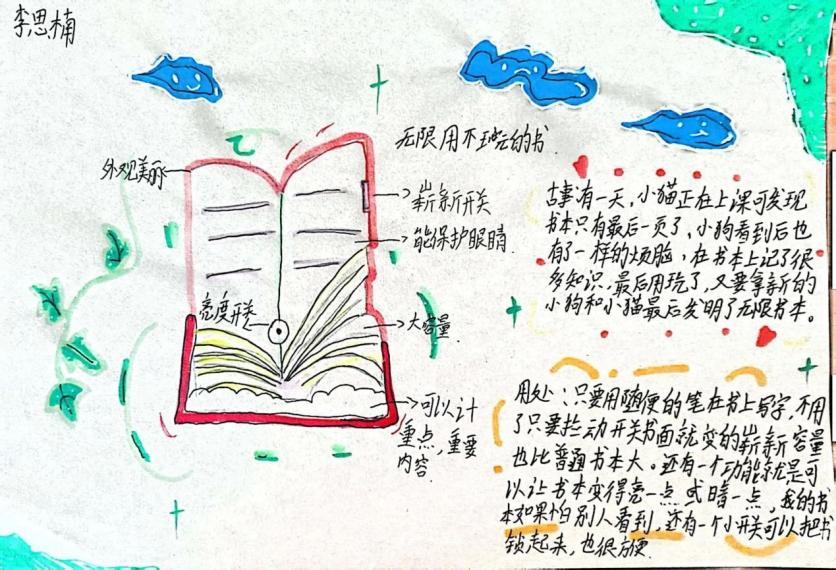 李思楠
无限用不完的书
外观美丽
崭新开关
能保护眼睛
亮度开关
大容量
可以计
重点,重要
内容
古事:有一天,小猫正在上课可发现
书本只有最后一页了,小狗看到后也
有了一样的烦脑,在书本上记了很
多知识,最后用完了,又要拿新的
小狗和小猫最后发明了无限书本。
用处:只要用随便的笔在书上写字,不用
了只要拦动开关书面就变的崭新容量
也比普通书本大。还有一个功能就是可
以让书本变得亮一点或暗一点,我的书
本如果怕别人看到,还有一个小开关可以把书
锁起来,也很方便.